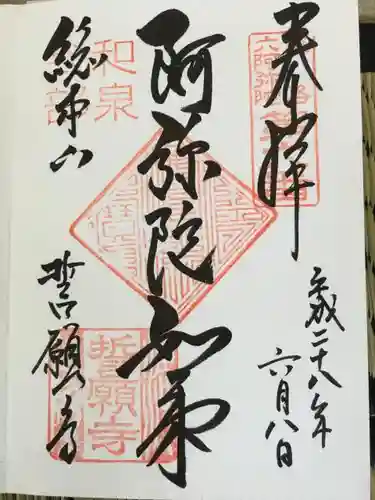 奉拝
平成二十八年
六月八日
阿弥陀如来
総本山
誓願寺
和泉
式部
誓願寺